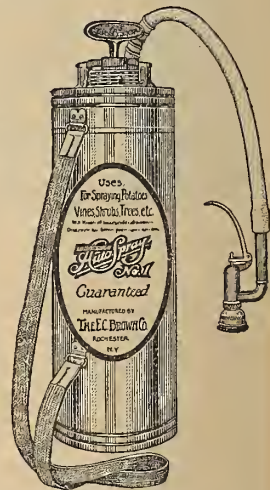 Uses.
For Spraying Potatoes
Vines, Shrubs, Trees, etc.
Auto Spray
No. 1
Guaranteed
MANUFACTURED BY
THE E.C. BROWN CO.
ROCHESTER
N.Y